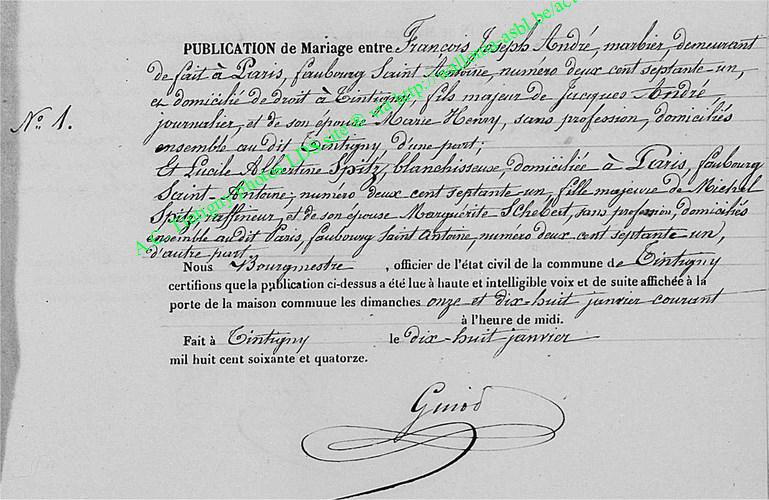 PUBLICATION de Mariage entre François Joseph André, marbier, demeurant
de fait à Paris, faubourg Saint Antoine, numéro deux cent septante-un,
et domicilié de droit à Tintigny, fils majeur de Jacques André,
N° 1.
journalier, et de son épouse Marie Henry, sans profession, domiciliés
ensemble au dit Tintigny, d'une part;
Et Lucile Albertine Spitz, blanchisseuse, domiciliée à Paris, faubourg
Saint-Antoine, numéro deux cent septante-un, fille majeure de Michel
Spitz, raffineur, et de son épouse Marguérite Schebert, sans profession, domiciliés
ensemble au dit Paris, faubourg Saint Antoine, numéro deux cent septante-un,
d'autre part.
Nous Bourgmestre, officier de l'état civil de la commune de Tintigny
certifions que la publication ci-dessus a été lue à haute et intelligible voix et de suite affichée à la
porte de la maison commune les dimanches onze et dix-huit janvier courant
à l'heure de midi.
Fait à Tintigny le dix-huit janvier
mil huit cent soixante et quatorze.
A.G. Tintigny Photo LDS site © via http://wallonia-asbl.be/ac